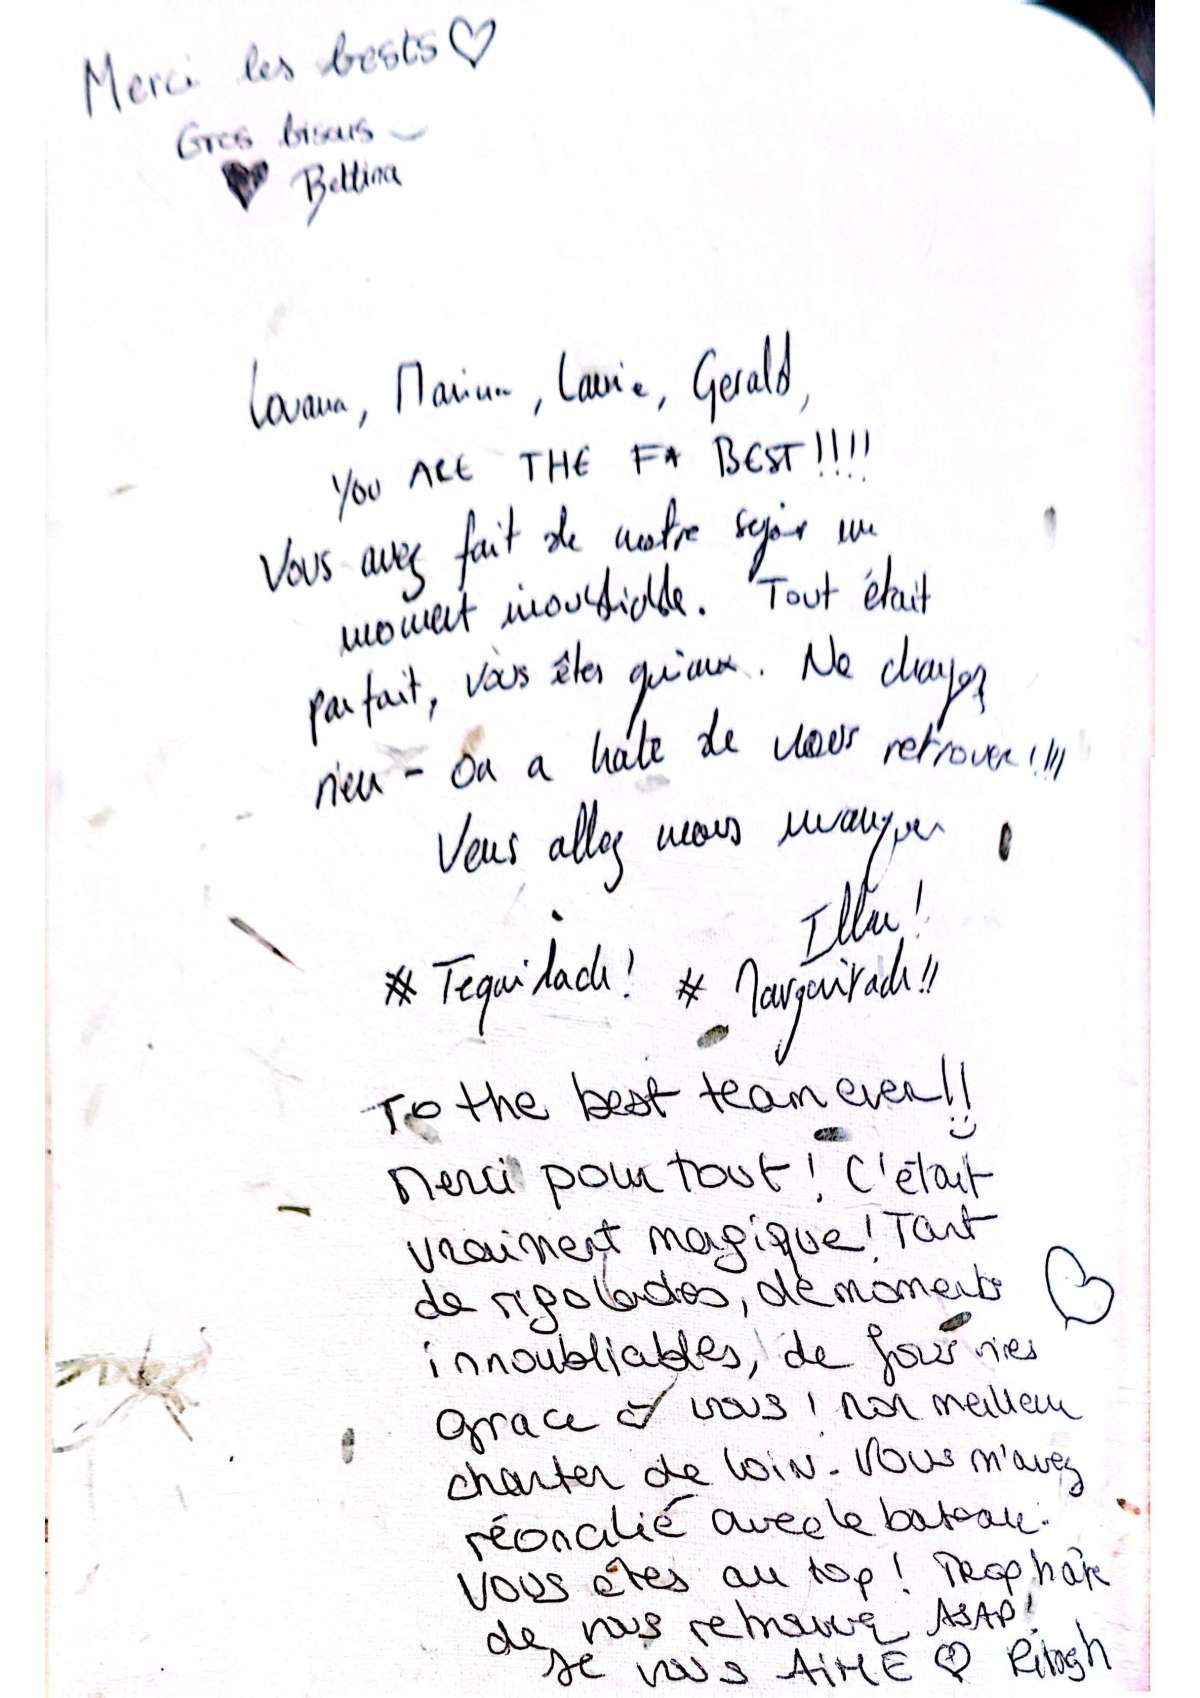 Merci les bests ♡
Gros bisous
♥ Bettina
Marina, Laurie, Gerald,
YOU ARE THE F* BEST!!!!
Vous avez fait de notre séjour un
moment inoubliable. Tout était
parfait, vous êtes géniaux. Ne changez
rien - On a hate de vous retrouver!!!!
Vous allez nous manquer
# Tequilach! #
To the best team ever!!
Merci pour tout! C'était
vraiment magique! Tant
de rigolades, de moments
innoubliables, de fous rires
grace à vous! Mon meilleur
charter de loin. Vous m'avez
réoncilié avec le bateau.
Vous êtes au top! Trop hâte
de vous retrouver ASAP!
Je vous AIME ♡